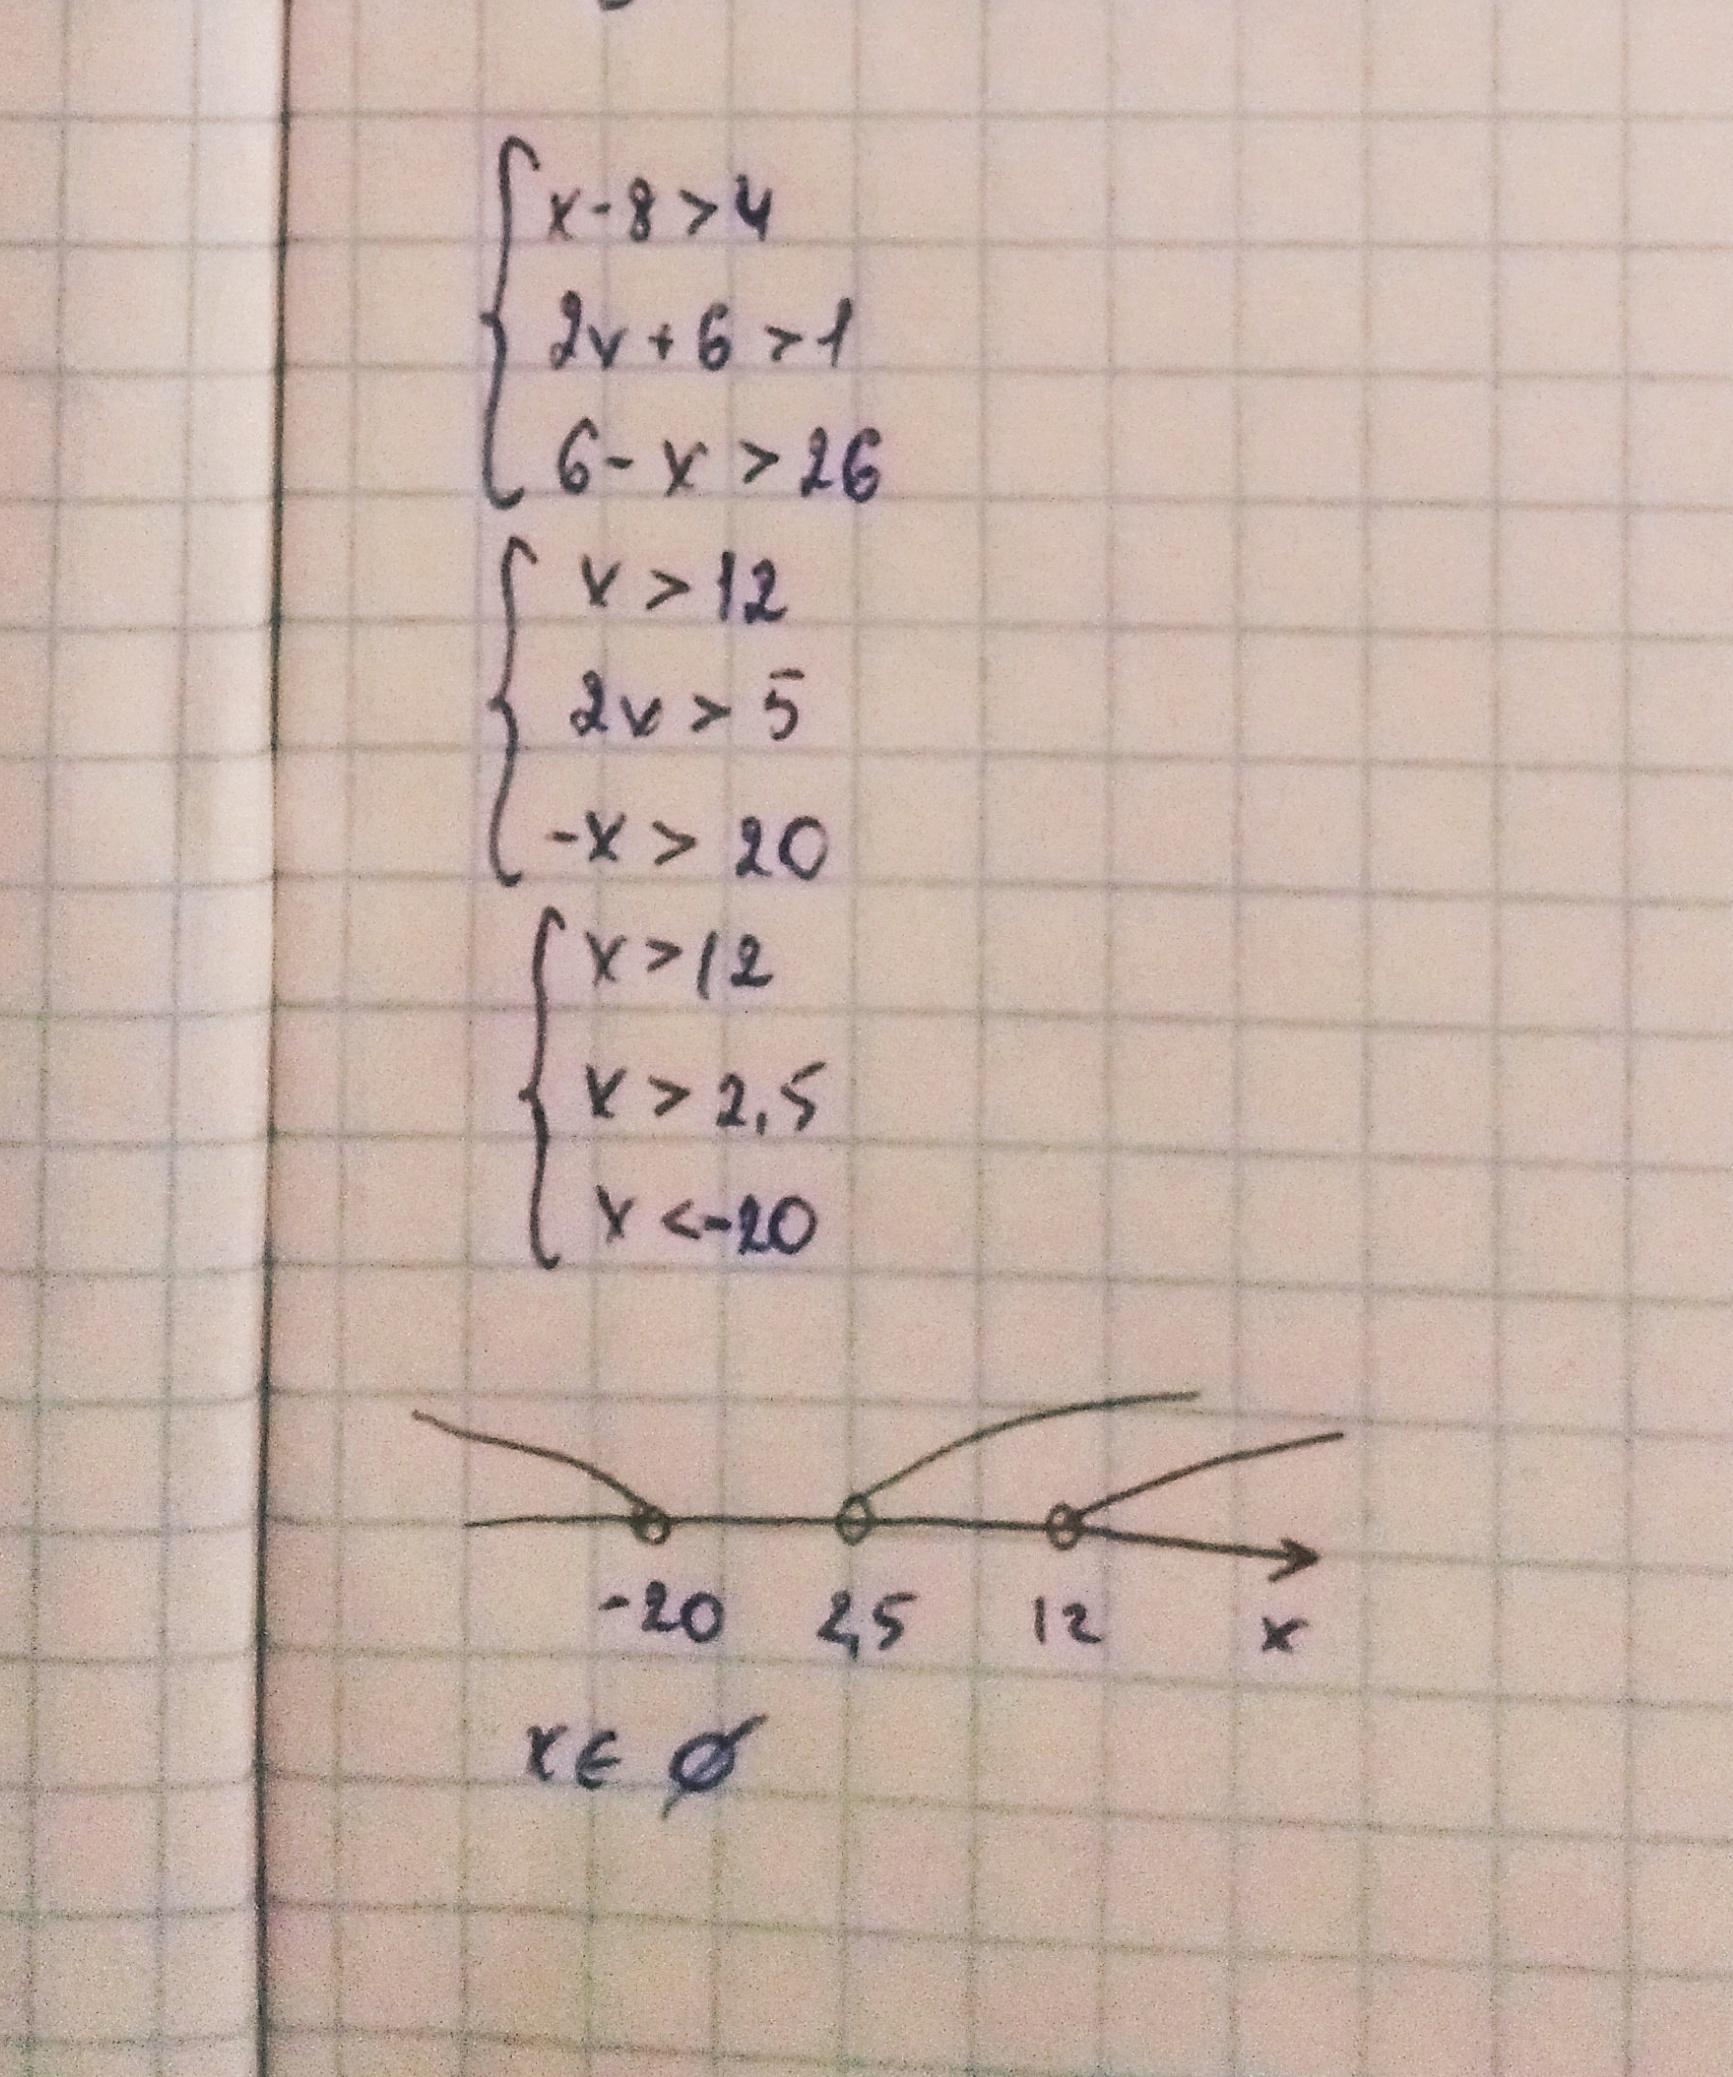 x-8>4
2x+6>1
6-x>26
x>12
2x>5
-x>20
x>12
x>2,5
x<-20
-20 2,5 12 x
x∈ ∅